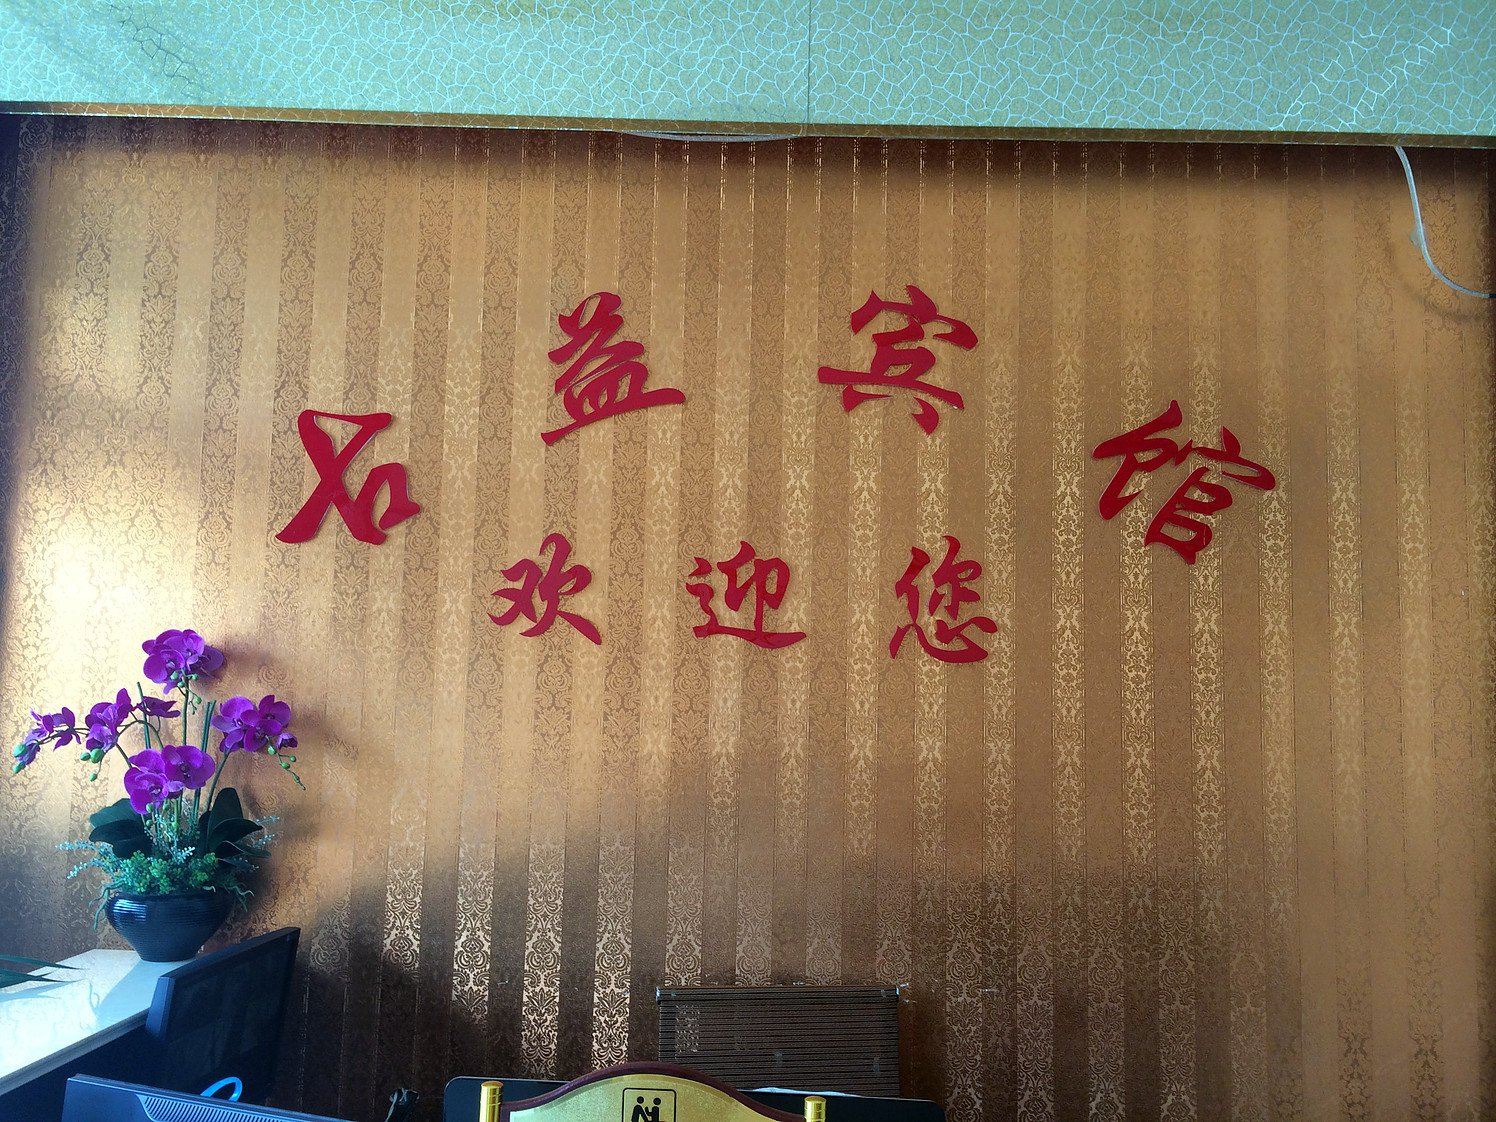 石益宾馆
欢迎您